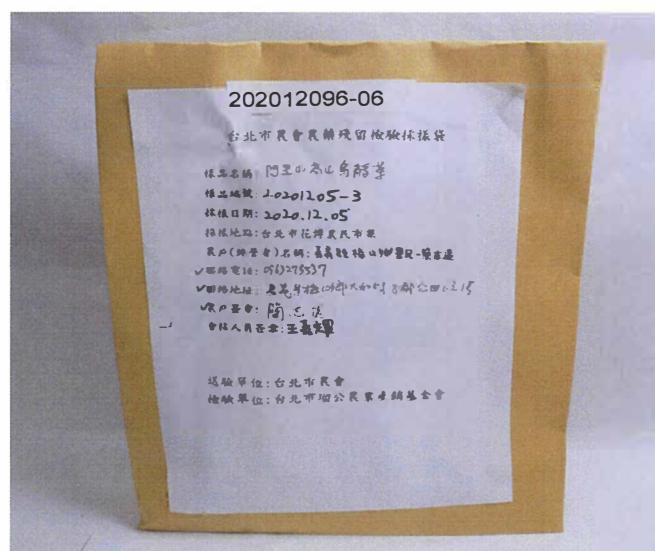 202012096-06
台北市農會農藥殘留檢驗採樣袋
樣品名稱: 阿里山高山烏龍茶
樣品編號: 20201205-3
採樣日期: 2020.12.05
採樣地點: 台北市花博農民市集
農戶(經營者)名稱: 嘉義縣梅山鄉農民-簡志遠
✓聯絡電話:
✓聯絡地址:
✓農戶簽章: 簡志遠
會採人員簽章: 王嘉輝
送驗單位: 台北市農會
檢驗單位: 台北市瑠公農業產銷基金會